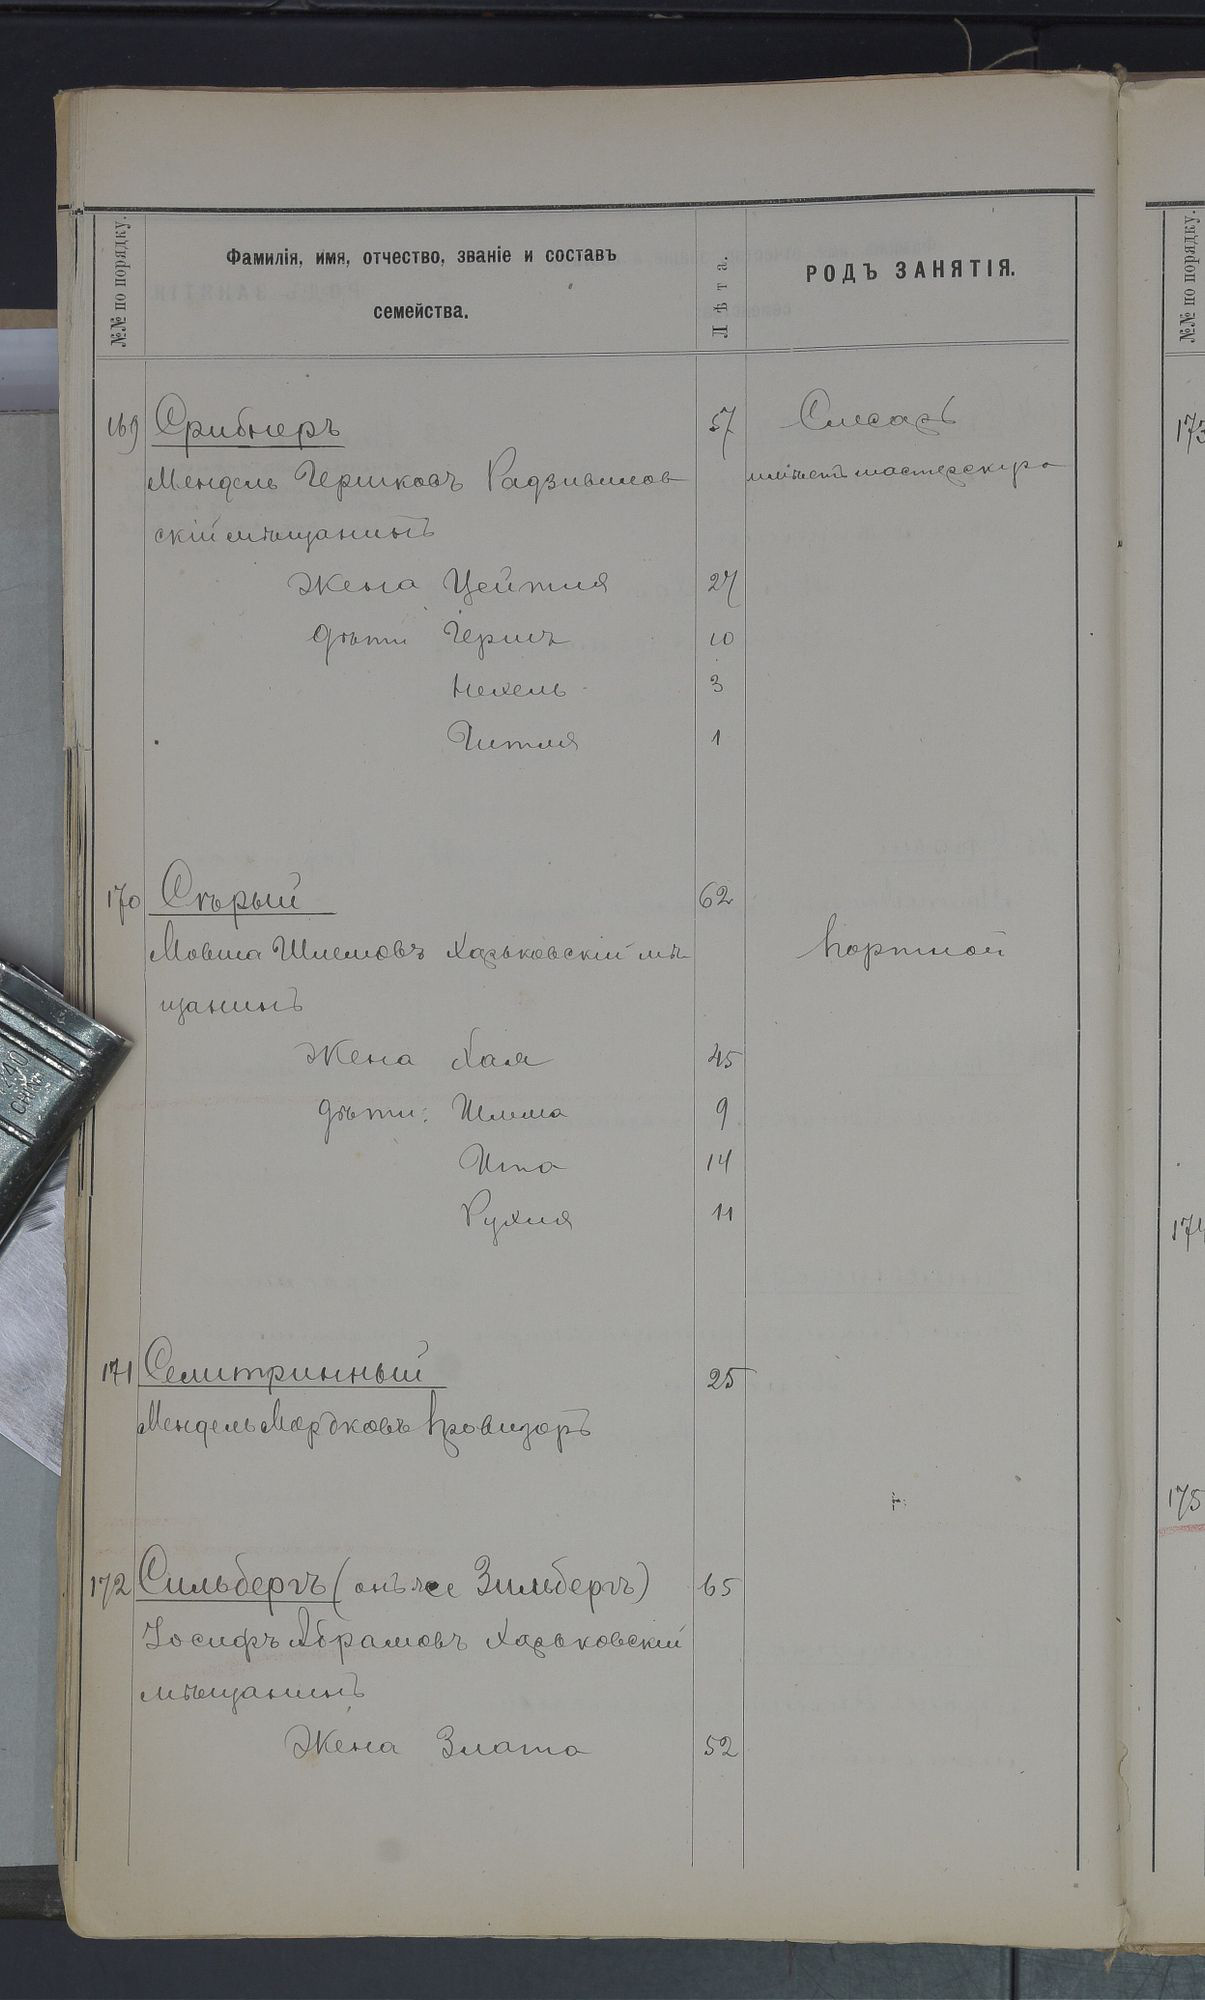 №№ по порядку.
Фамилія, имя, отчество, званіе и составъ
семейства.
Лѣта.
РОДЪ ЗАНЯТІЯ.
№№ по порядку.
169 Срибнеръ 57 Слесарь
Мендель Гершковъ Радзивилов
имѣетъ мастерскую
скій мѣщанинъ
Жена Цейтля 27
Дѣти Гершъ 10
Нехель 3
Гитля 1
170 Сѣрый 62
Мовша Шлемовъ Харьковскій мѣ Портной
щанинъ
Жена Хая 45
Дѣти: Шлема 9
Ита 14
Рухля 11
171 Селитринный 25
Мендель Мордковъ Провизоръ
172 Сильбергъ (онъ же Зильбергъ) 65
Іосифъ Абрамовъ Харьковскій
мѣщанинъ
Жена Злата 52
173
174
175